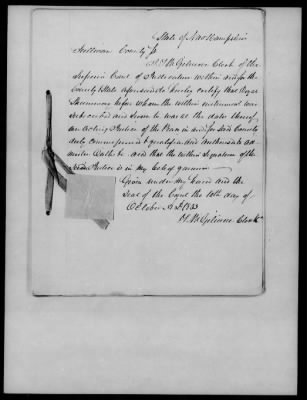 State of New Hampshire
County ss
I Clerk of the
Superior Court of Judicature within and for the
County & State aforesaid do hereby certify that
before whom the within instrument was
subscribed and sworn to was at the date thereof
an acting Justice of the Peace in and for said County
duly commissioned & qualified and authorized to ad
minister Oaths & and that the within Signature of the
said Justice is in my belief genuine
Given under my hand and the
Seal of the Court the 10th day of
October A.D.
Clerk